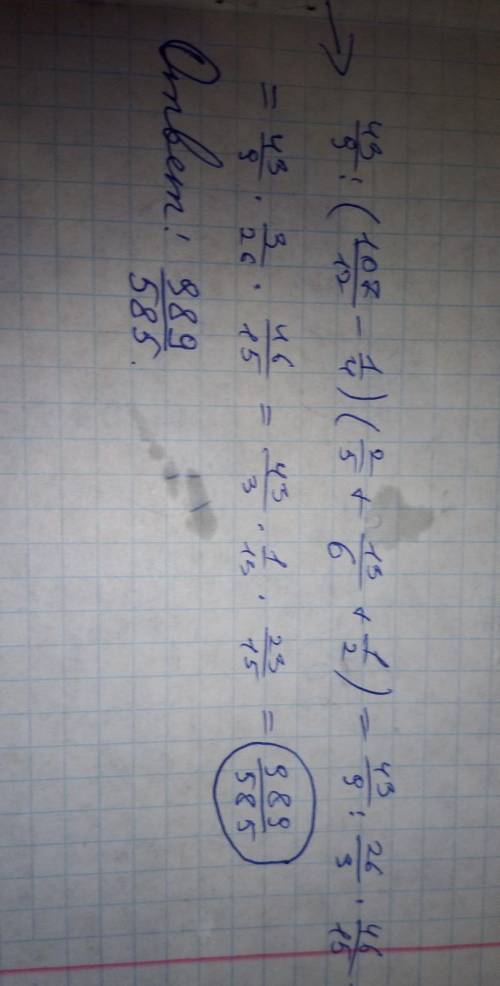 → 43/9 : (107/12 − 1/4)(2/5 + 13/6 + 1/2) = 43/9 : 26/3 · 46/15
= 43/9 · 3/26 · 46/15 = 43/3 · 1/13 · 23/15 = 989/585
Ответ: 989/585.